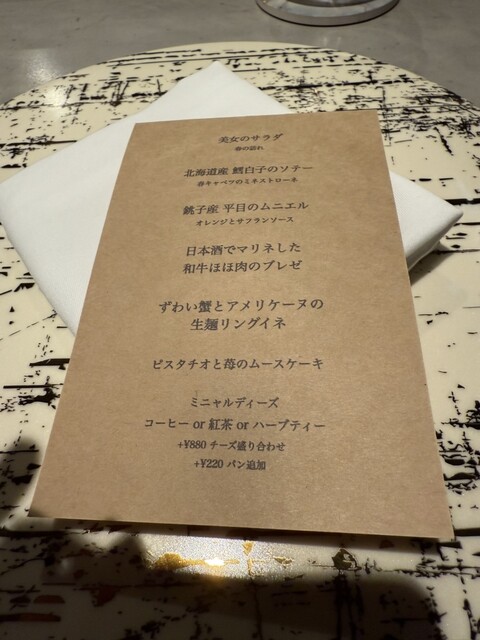 美女のサラダ
春の訪れ
北海道産 鱈白子のソテー
春キャベツのミネストローネ
銚子産 平目のムニエル
オレンジとサフランソース
日本酒でマリネした
和牛ほほ肉のブレゼ
ずわい蟹とアメリケーヌの
生麺リングイネ
ピスタチオと苺のムースケーキ
ミニャルディーズ
コーヒー or 紅茶 or ハーブティー
+¥880 チーズ盛り合わせ
+¥220 パン追加